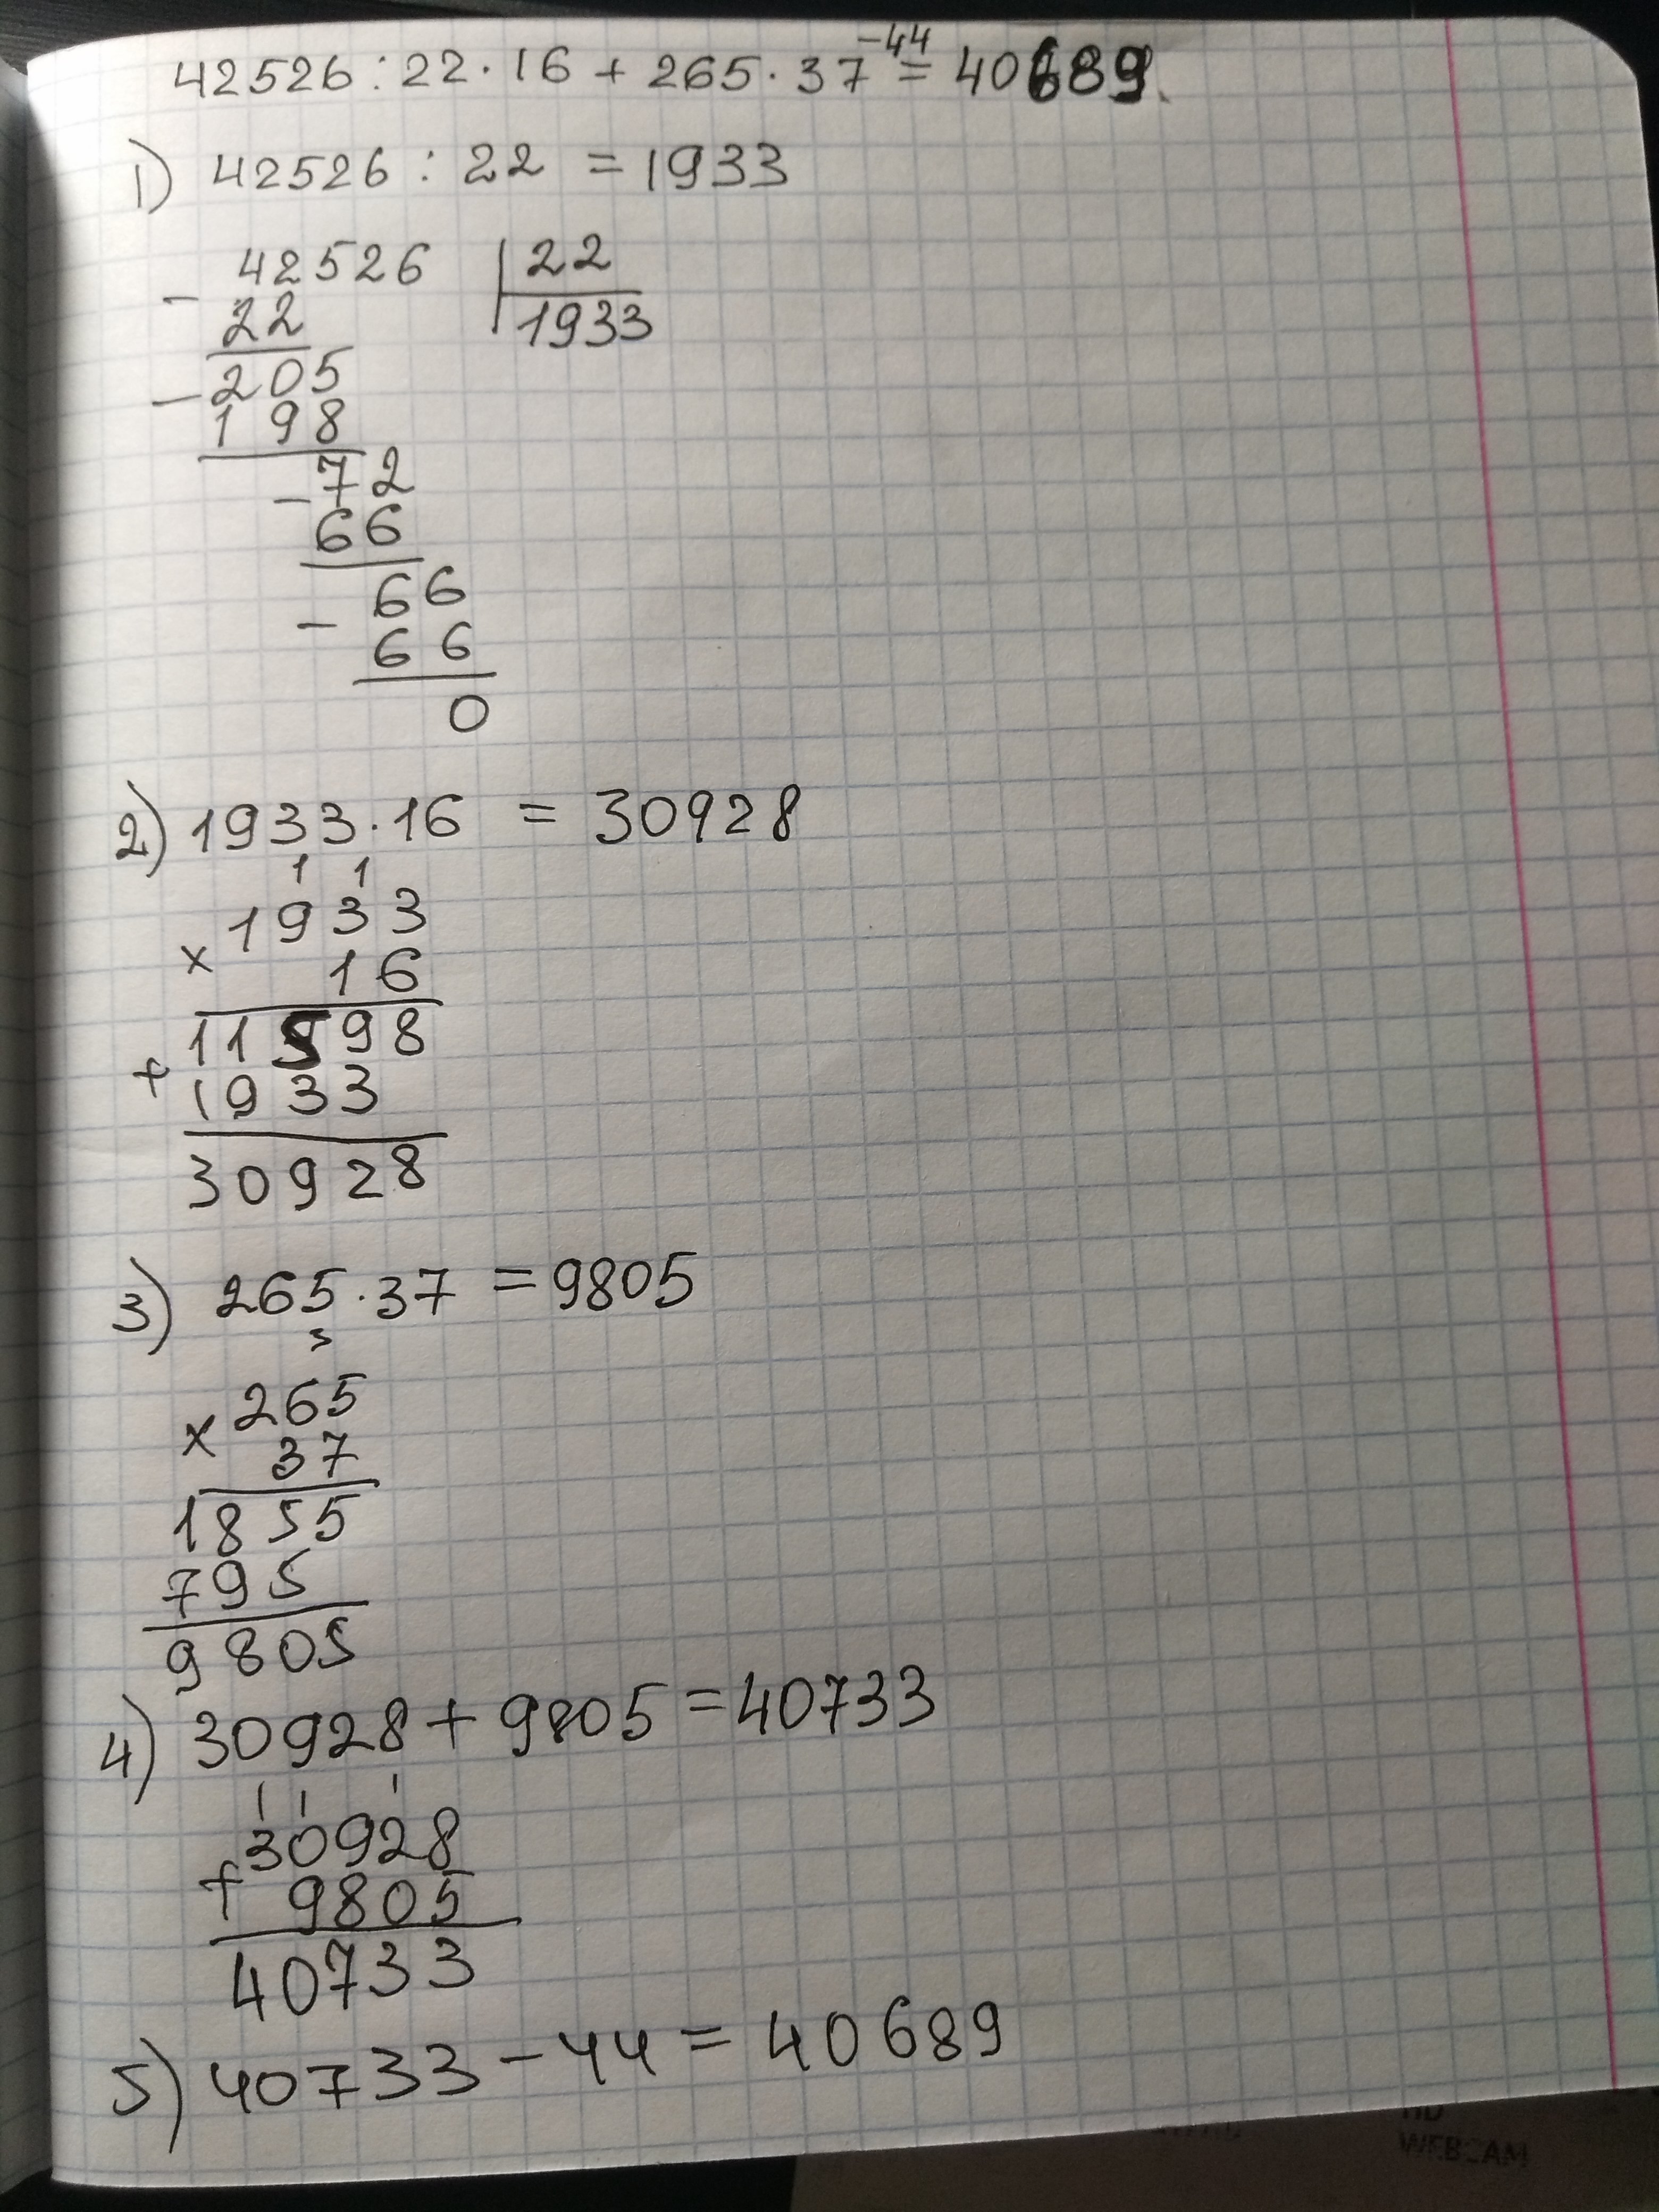 42526 : 22 · 16 + 265 · 37 - 44 = 40689.
1) 42526 : 22 = 1933
- 42526 | 22
22 1933
- 205
198
- 72
66
- 66
66
0
2) 1933 · 16 = 30928
1 1
1933
× 16
11598
+ 1933
30928
3) 265 · 37 = 9805
3
× 265
37
1855
795
9805
4) 30928 + 9805 = 40733
1 1 1
30928
+ 9805
40733
5) 40733 - 44 = 40689
HD
WEBCAM